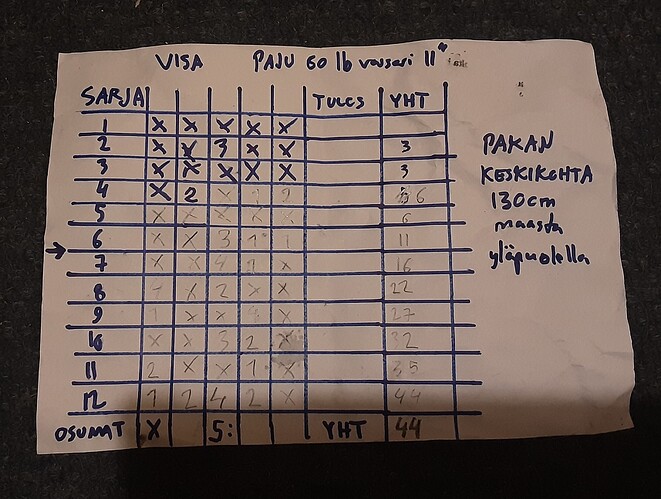 VISA PAJU 60 lb vaisari 11"
SARJA TULOS YHT
1 X X X X X
2 X X 3 X X 3
3 X X X X X 3
4 X 2 X 1 2 6
5 X X X X X 6
6 X X 3 1 1 11
7 X X 4 1 X 16
8 1 X 2 X X 22
9 1 X X 4 X 27
10 X X 3 2 X 32
11 2 X X 1 X 35
12 1 2 4 2 X 44
OSUMAT X 5: YHT 44
PAKAN
KESKIKOHTA
130cm
maasta
yläpuolella